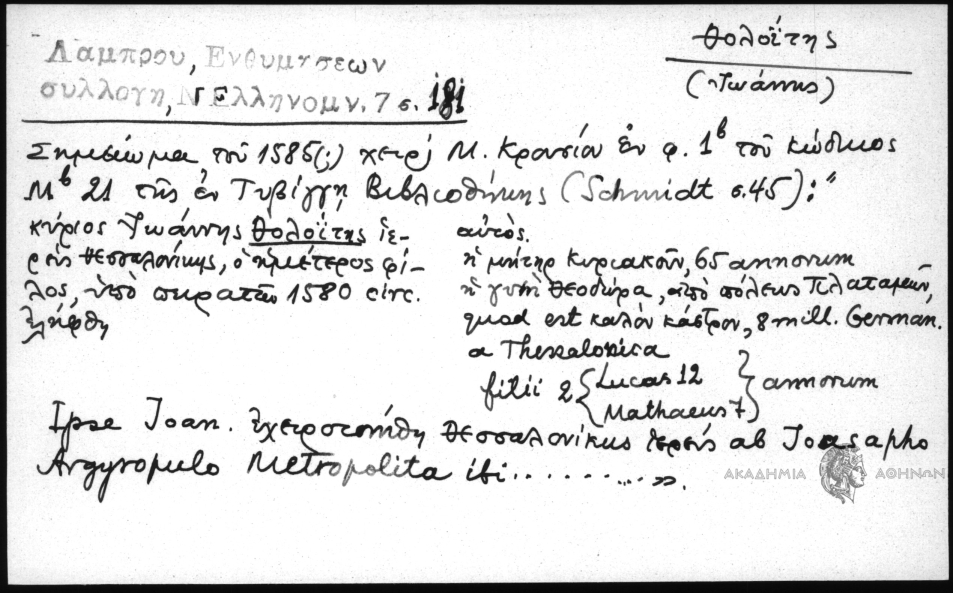 Θολοΐτης
(Ἰωάννης)
Λάμπρου, Ἐνθυμήσεων
συλλογή, Ν Ἑλληνομν. 7 σ. 181
Σημείωμα τοῦ 1585(;) χειρὶ Μ. Κρουσίου ἐν φ. 1β τοῦ κώδικος
Μb 21 τῆς ἐν Τυβίγγῃ Βιβλιοθήκης (Schmidt σ. 45): "
κύριος Ἰωάννης Θολοΐτης ἱε-
ρεὺς Θεσσαλονίκης, ὁ ἡμέτερος φί-
λος, ὑπὸ πειρατῶν 1580 circ.
ἐλήφθη
αὐτός.
ἡ μήτηρ Κυριακοῦ, 65 annorum
ἡ γυνὴ Θεοδώρα, ἀπὸ πόλεως Πλαταμών,
quod est καλὸν κάστρον, 8 mill. German.
a Thessalonica
filii 2 { Lucas 12
Mathaeus 7 } annorum
Ipse Joan. ἐχειροτονήθη Θεσσαλονίκης ἱερεὺς ab Joasapho
Argyropulo Metropolita ibi . . . . . . . . . . ».
ΑΚΑΔΗΜΙΑ ΑΘΗΝΩΝ